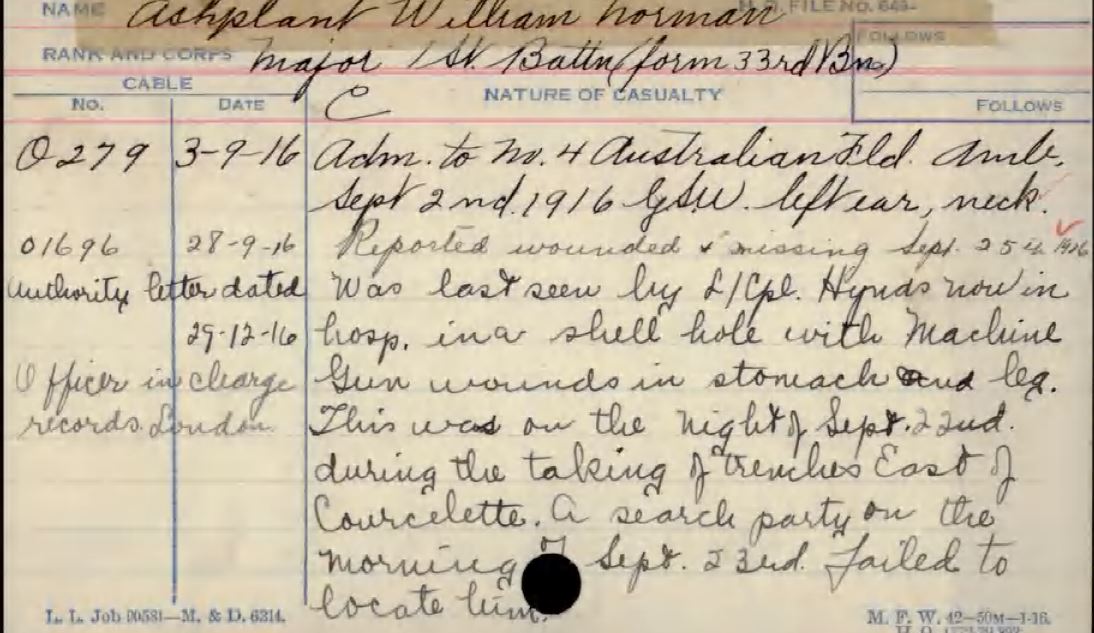 NAME Ashplant William Norman H.Q. FILE NO. 649-
FOLLOWS
RANK AND CORPS Major 1st. Battn (form 33rd Bn.)
CABLE
NO. DATE C NATURE OF CASUALTY FOLLOWS
O279 3-9-16 Adm. to No. 4 Australian Fld. Amb.
Sept 2nd. 1916 G.S.W. left ear, neck.
O1696 28-9-16 Reported wounded & missing Sept. 25th 1916
Authority letter dated Was last seen by L/Cpl. Hynds now in
29-12-16 hosp. in a shell hole with Machine
Officer in charge Gun wounds in stomach and leg.
records. London. This was on the night of Sept. 22nd.
during the taking of trenches East of
Courcelette. A search party on the
morning of Sept. 23rd. failed to
locate him.
L. L. Job 90581—M. & D. 6314. M. F. W. 42—50M—1-16.